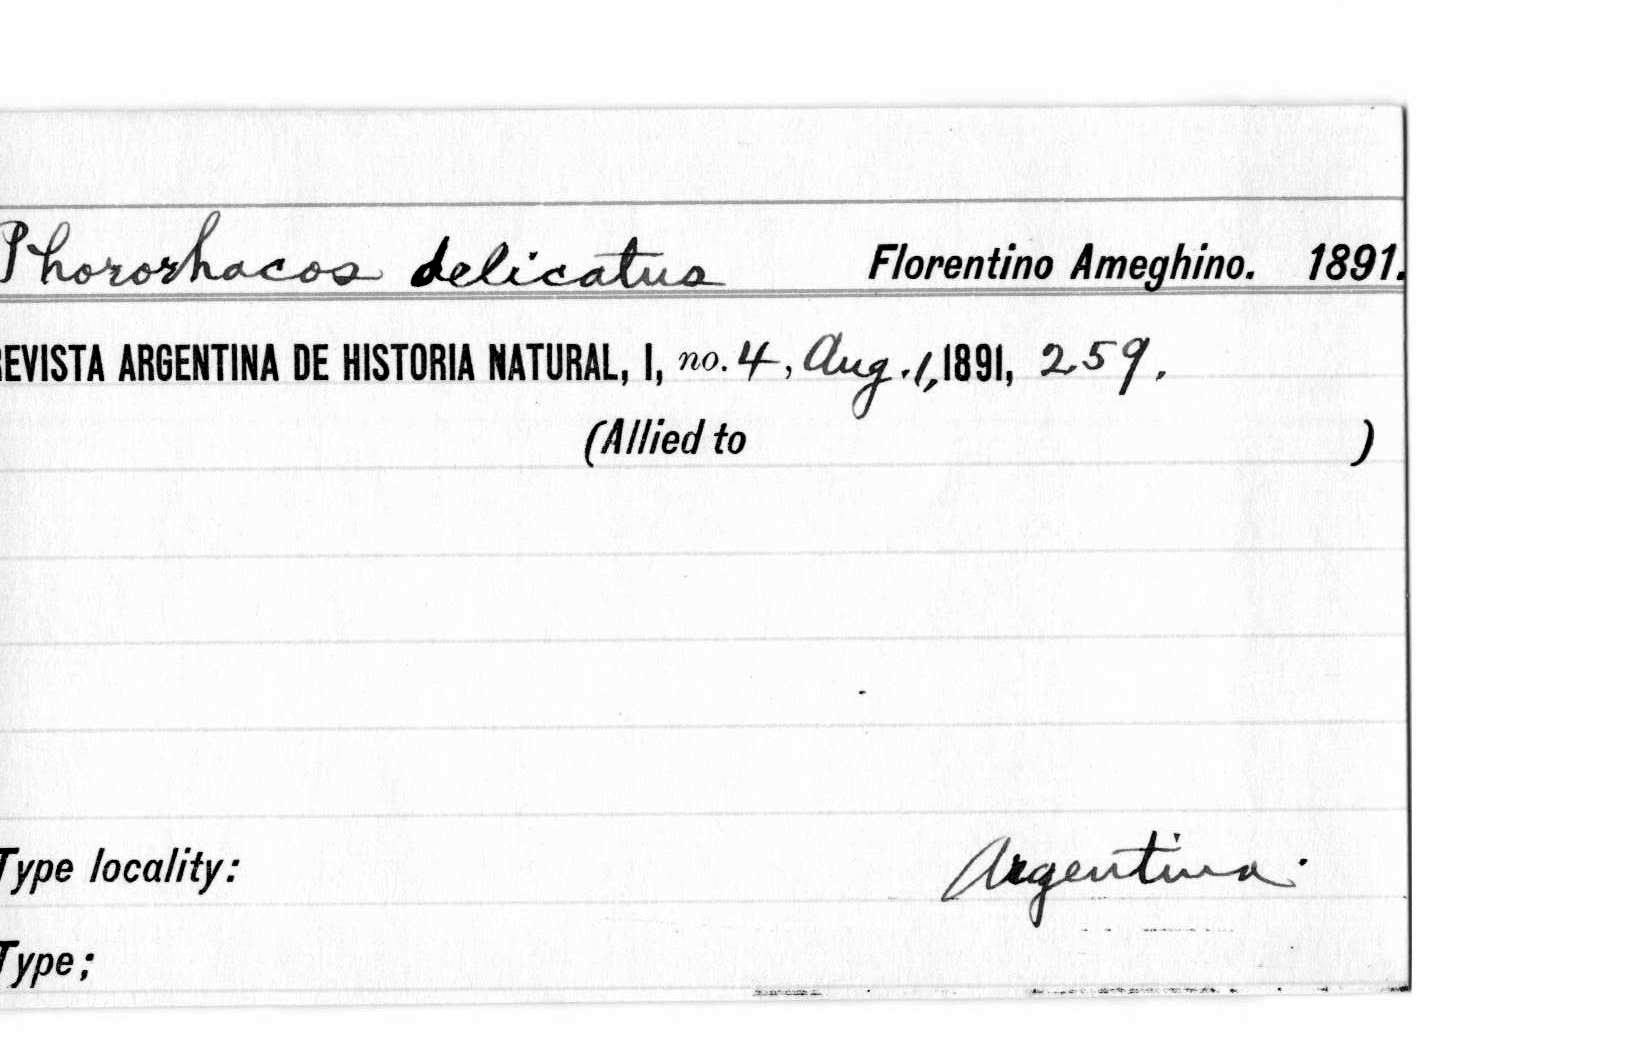 Phororhacos delicatus Florentino Ameghino. 1891.
REVISTA ARGENTINA DE HISTORIA NATURAL, I, no. 4, Aug. 1, 1891, 259.
(Allied to )
Type locality: Argentina.
Type;